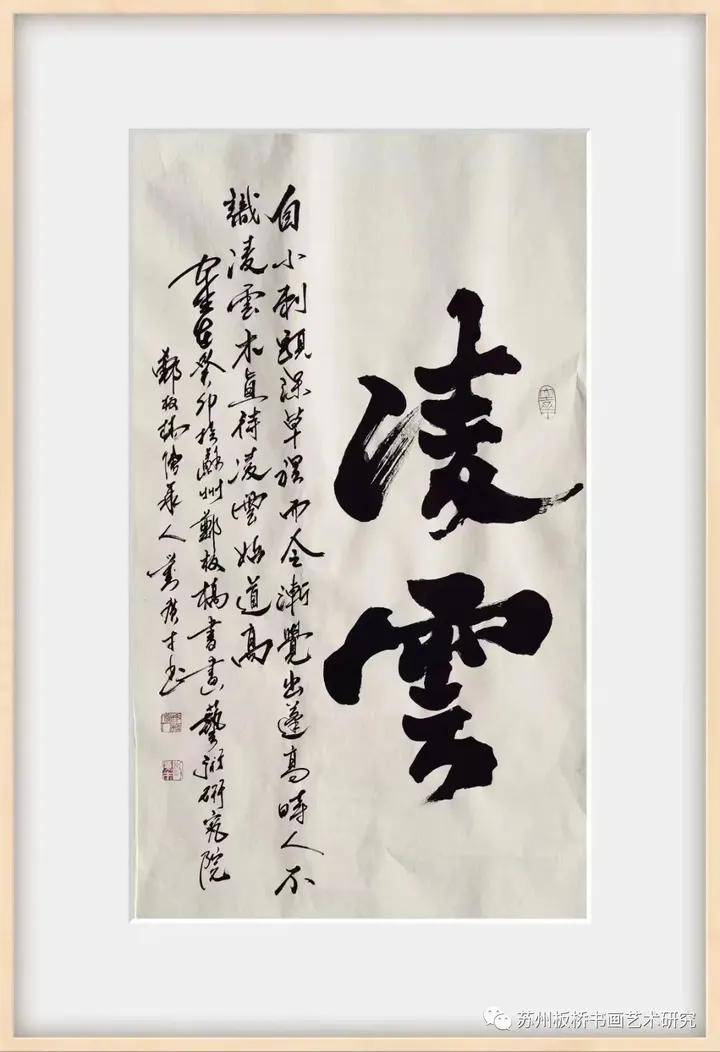 凌雲
自小刺頭深草裡而今漸覺出蓬高時人不
識凌雲木直待凌雲始道高
歲在癸卯於蘇州鄭板橋書畫藝術研究院
鄭板橋傳承人才書
苏州板桥书画艺术研究